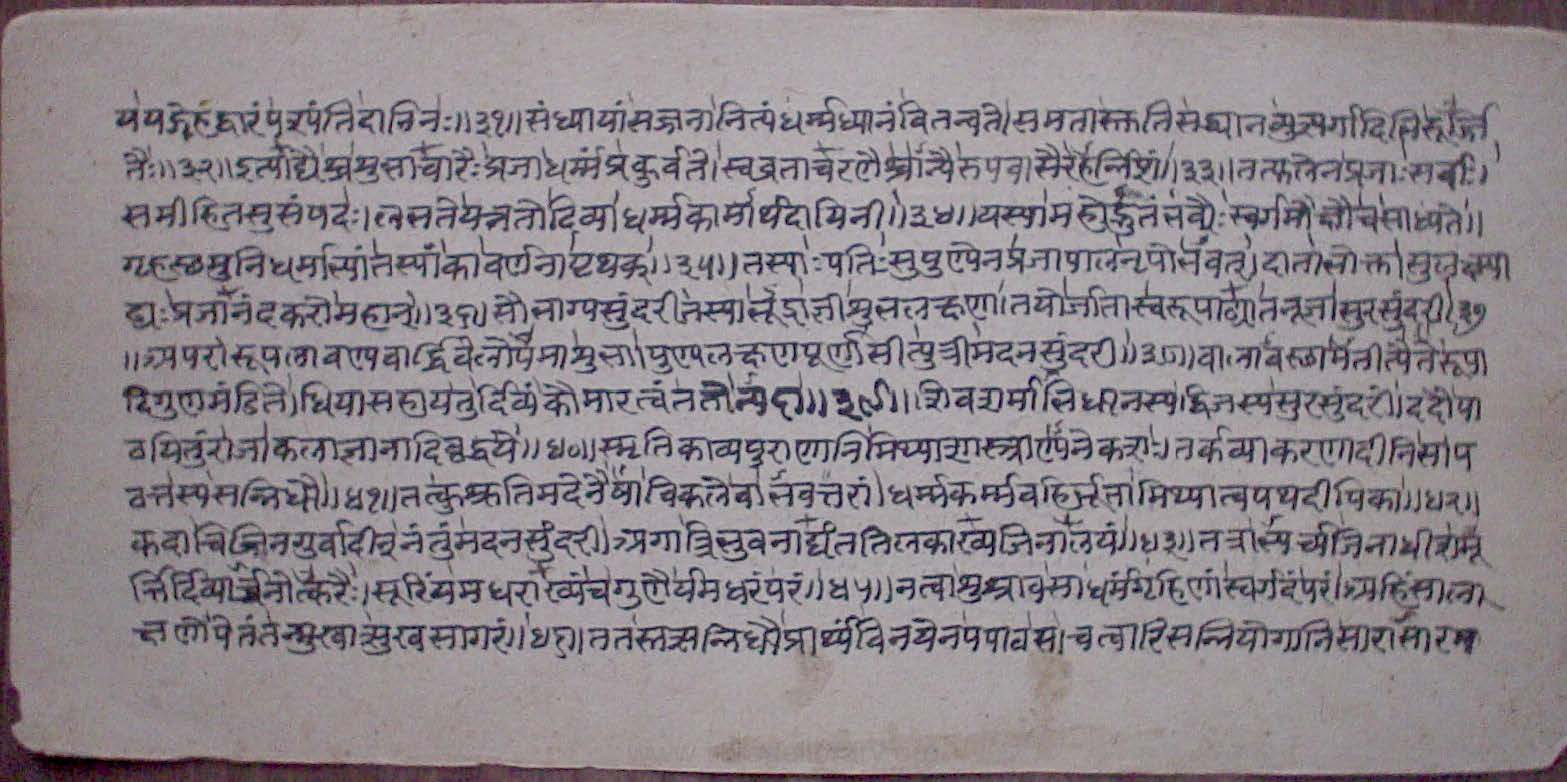 ॥३१॥ संध्यायां सज्जना नित्यं धर्म्मध्यानं वितन्वते। समता
तैः॥३२॥ इत्याद्यैश्च सुसाचारैः प्रजा धर्म्मं प्रकुर्वते। स्वव्रताचरणैश्चान्यैरुपवासैरहर्निशं॥३३॥ तत्फलेन प्रजाः सर्वाः
समीहितसुसंपदः। लसते यत्नतो दिव्या धर्म्मकामार्थदायिनी॥३४॥ यस्यामहोद्भुतं भव्यैः स्वर्गमोक्षौ च साध्यते।
गृहस्थमुनिधर्माभ्यां तस्यां का वर्णना पृथक्॥३५॥ तस्याः पतिः सुपुण्येन प्रजापालनृपोभवत्। दाता भोक्ता
प्रजानंदकरो महान्॥३६॥ सौभाग्यसुंदरी तस्याभूद्राज्ञी शुभलक्षणा। तयोर्जाता स्वरूपाढ्या तनूजा सुरसुंदरी।३७
॥अपरा रूपलावण्यवार्द्धिवेलोपमा शुभा। पुण्यलक्षणपूर्णासीत्पुत्री मदनसुंदरी॥३८॥ बालावस्थामतीत्यैते रूपा
दिगुणमंडिते। धिया सहायतुर्दिव्यं कौमारत्वं ततोन्यदा॥३९॥ शिवशर्माभिधानस्य द्विजस्य सुरसुंदरीं। ददौ पा
ठयितुं राजा कलाज्ञानादिवृद्धये॥४०॥ स्मृतिकाव्यपुराणानि मिथ्याशास्त्राण्यनेकशः। तर्कव्याकरणादीनि सा प
ठत्तस्य सन्निधौ॥४१॥ तत्कुश्रुतिमदेनैषा विकलेवाभवत्तरां। धर्म्मकर्म्मबहिर्भूता मिथ्यात्वपथदीपिका॥४२॥
कदाचिज्जिनगुर्वादीन् नंतुं मदनसुंदरी। अगात्रिभुवनाद्यंततिलकाख्यजिनालयं॥४३॥ तत्राभ्यर्च्य जिनाधीशमू
र्त्तिर्दिव्यार्चनोत्करैः। सूरिं यमधराख्यं च गुणौर्यमधरं परं॥४५॥ नत्वा सुश्राव सा धर्मं गृहिणां स्वर्गदं परं। अहिंसाल
क्षणोपेतं तन्मुखात्सुखसागरं॥४६॥ ततस्तत्सन्निधौ प्रार्थ्य विनयेन पपाठ सा। चत्वारि सन्नियोगानि सारासार